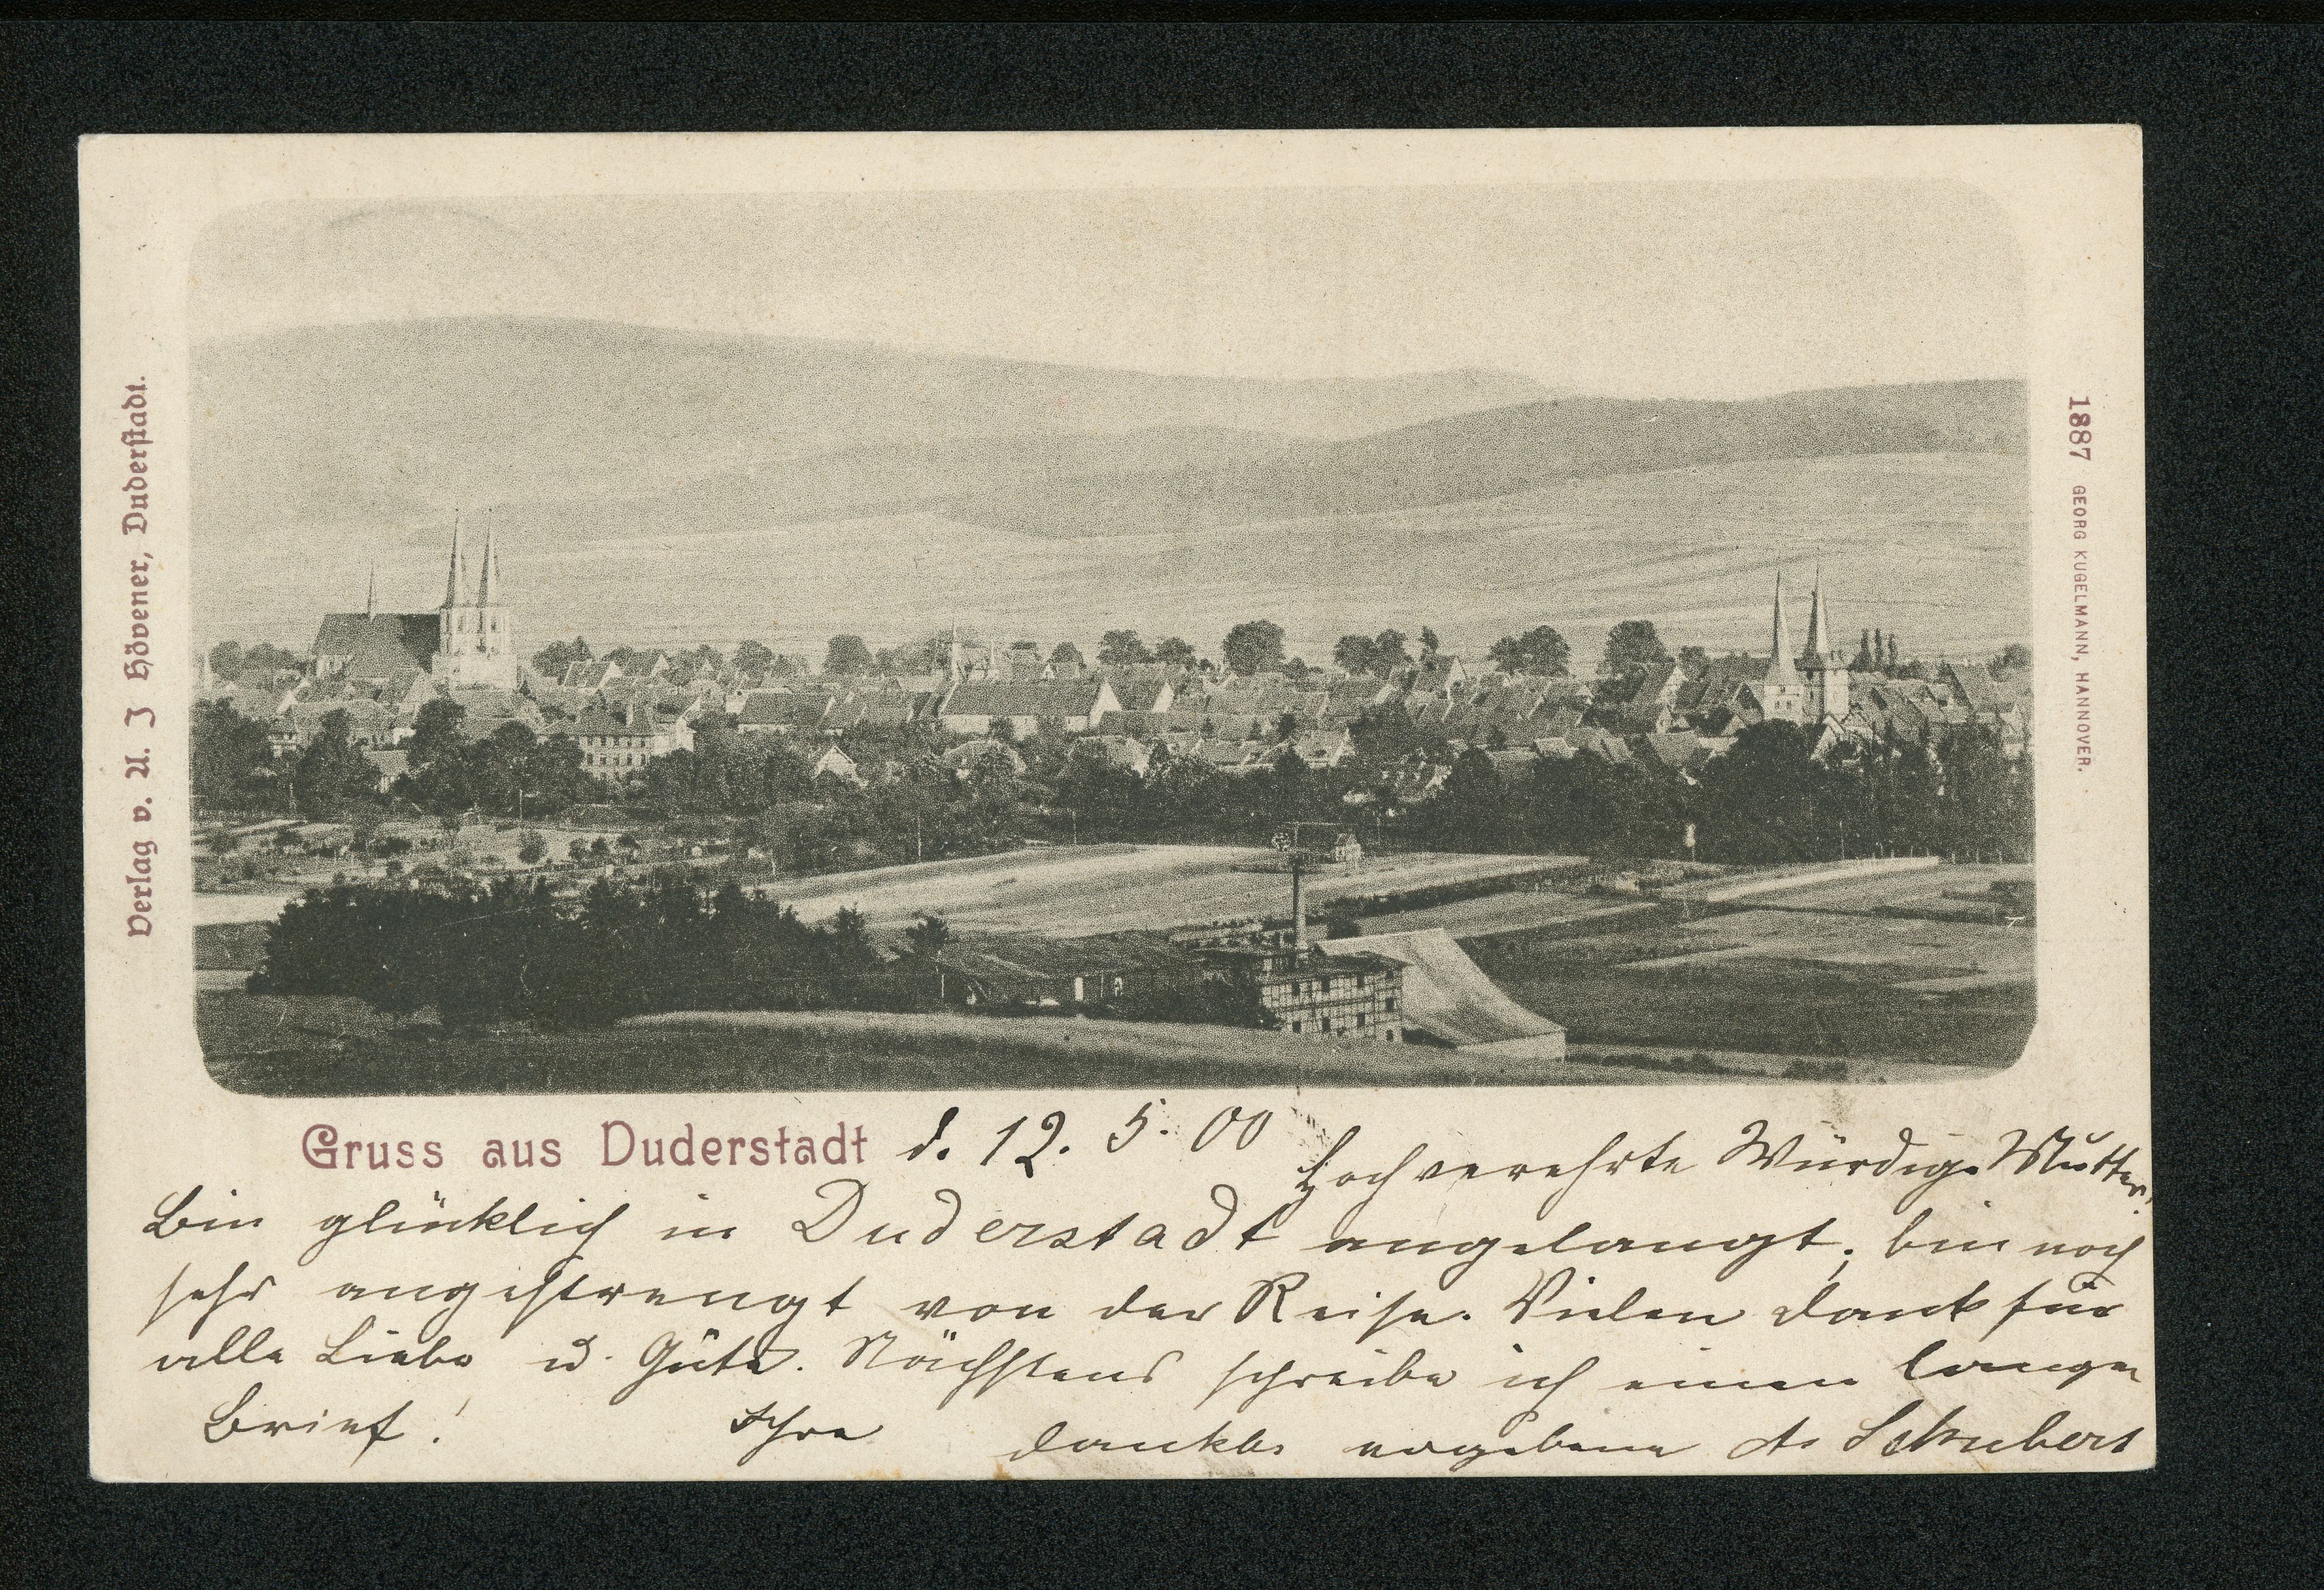 Verlag v. A. J Hövener, Duderstadt.
1887 GEORG KUGELMANN, HANNOVER.
Gruss aus Duderstadt d. 12. 5. 00
Hochverehrte Würdige Mutter!
Bin glücklich in Duderstadt angelangt; bin noch
sehr angestrengt von der Reise. Vielen Dank für
alle Liebe u. Güte. Nächstens schreibe ich einen langen
Brief! Ihre dankb. ergebene A. Schubert